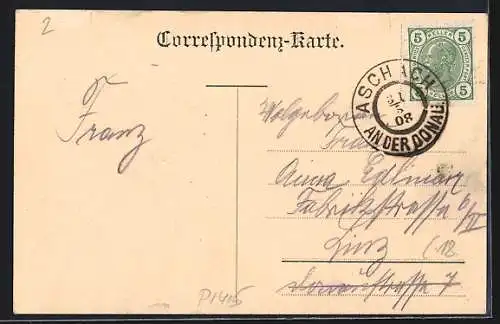 2
Correspondenz-Karte.
5 5
5 5
ASCHACH
AN DER DONAU
08
Franz
Wolgeboren
Frau
Anna Edlmair
Fabrikstrasse 6/II
Linz
18
7
P1415